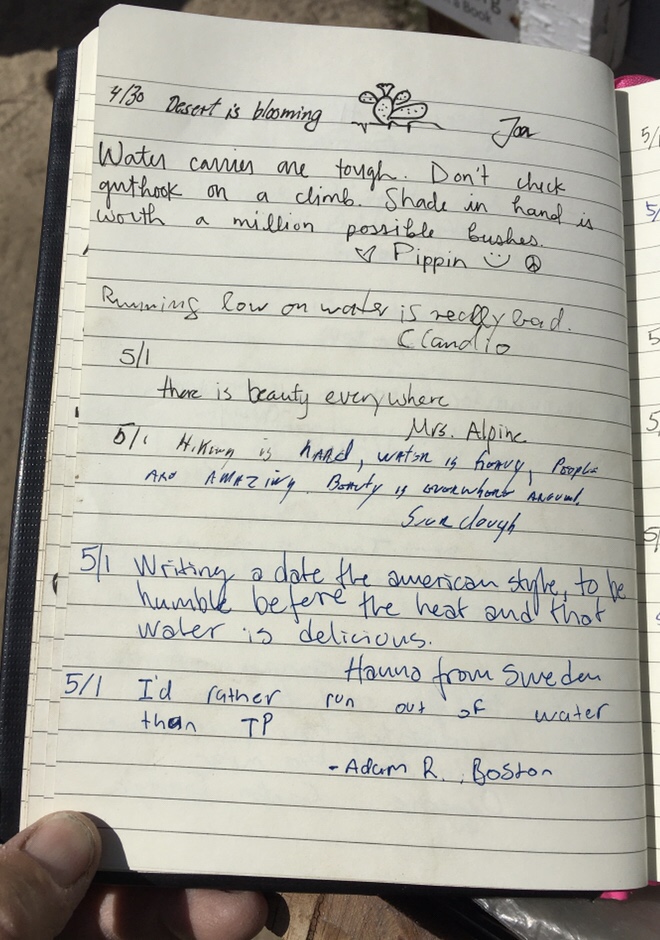 4/30 Desert is blooming
Joa
Water carries are tough. Don't check
guthook on a climb. Shade in hand is
worth a million possible bushes.
Pippin
Running low on water is really bad.
Claudio
5/1
there is beauty everywhere
Mrs. Alpine
5/1 Hiking is hard, water is heavy, People
are Amazing. Beauty is everywhere around.
5/1 Writing a date the american style, to be
humble before the heat and that
water is delicious.
Hanna from Sweden
5/1 I'd rather run out of water
than TP
- Adam R., Boston
a Book
5/1